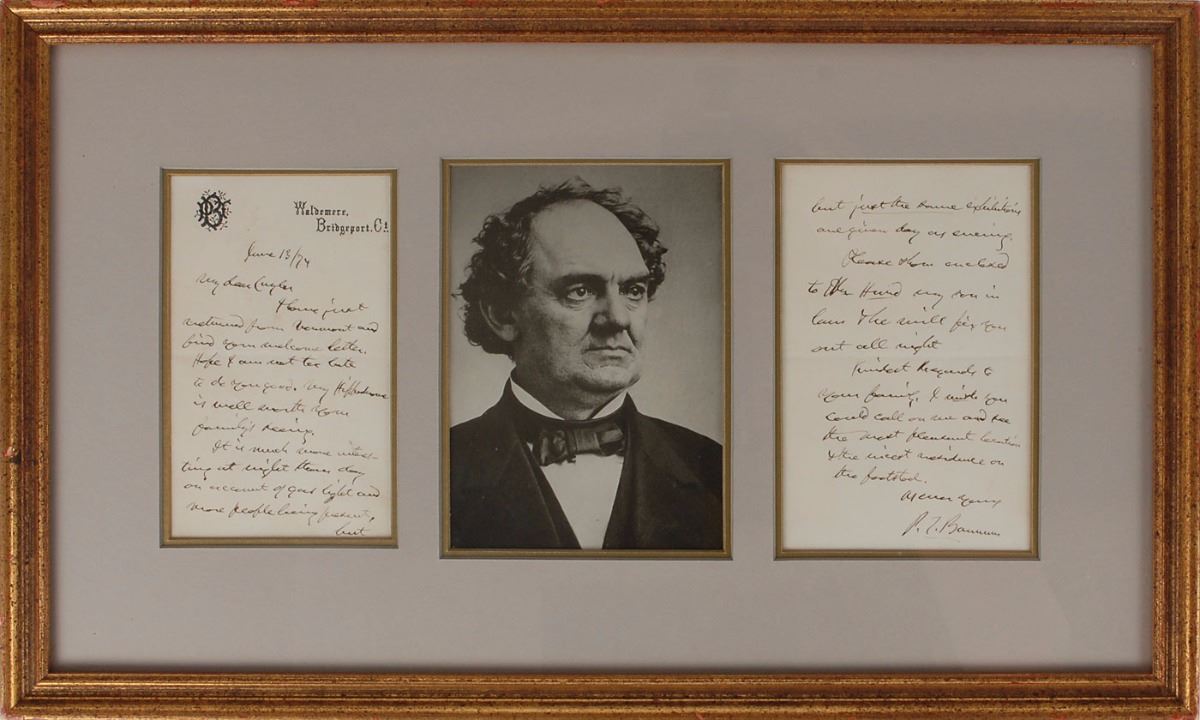 PTB
Waldemere,
Bridgeport, Ct.
June 13/74
My dear Cuyler
I have just
returned from Vermont and
find your welcome letter.
Hope I am not too late
to do you good. My Hippodrome
is well worth your
family's seeing.
It is much more interes-
ting at night than day
on account of gas light and
more people being present,
but
but just the same exhibitions
are given day as evening.
Please show enclosed
to Mr Hurd my son in
law & he will fix you
out all right
Kindest Regards to
your family. I wish you
could call on me and see
the most pleasant location
& the nicest residence on
the footstool.
As ever yours
P. T. Barnum